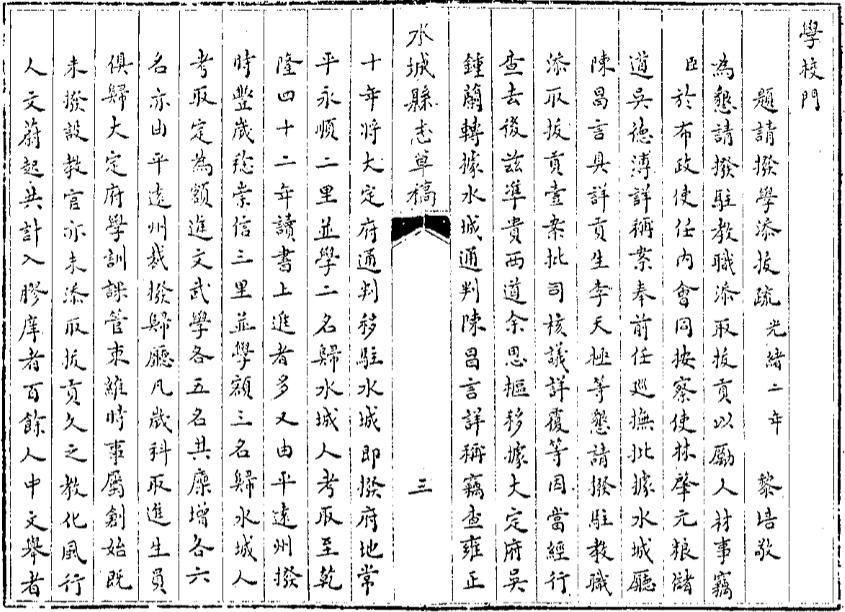 學校門
題請撥學添拔疏光緒二年 黎培敬
為懇請撥駐教職添取拔貢以勵人材事竊
臣於布政使任內會同按察使林肇元糧儲
道吳德溥詳稱案奉前任巡撫批據水城廳
陳昌言具詳貢生李天極等懇請撥駐教職
添取拔貢壹案批司核議詳覆等因當經行
查去後茲準貴西道余思樞移據大定府吳
鍾蘭轉據水城通判陳昌言詳稱竊查雍正
水城縣志草稿
三
十年將大定府通判移駐水城即撥府地常
平永順二里並學二名歸水城人考取至乾
隆四十二年讀書上進者多又由平遠州撥
時豐歲稔崇信三里並學額三名歸水城人
考取定為額進文武學各五名其廩增各六
名亦由平遠州裁撥歸廳凡歲科取進生員
俱歸大定府學訓課管束維時事屬創始既
未撥設教官亦未添取拔貢久之教化風行
人文蔚起共計入膠庠者百餘人中文舉者